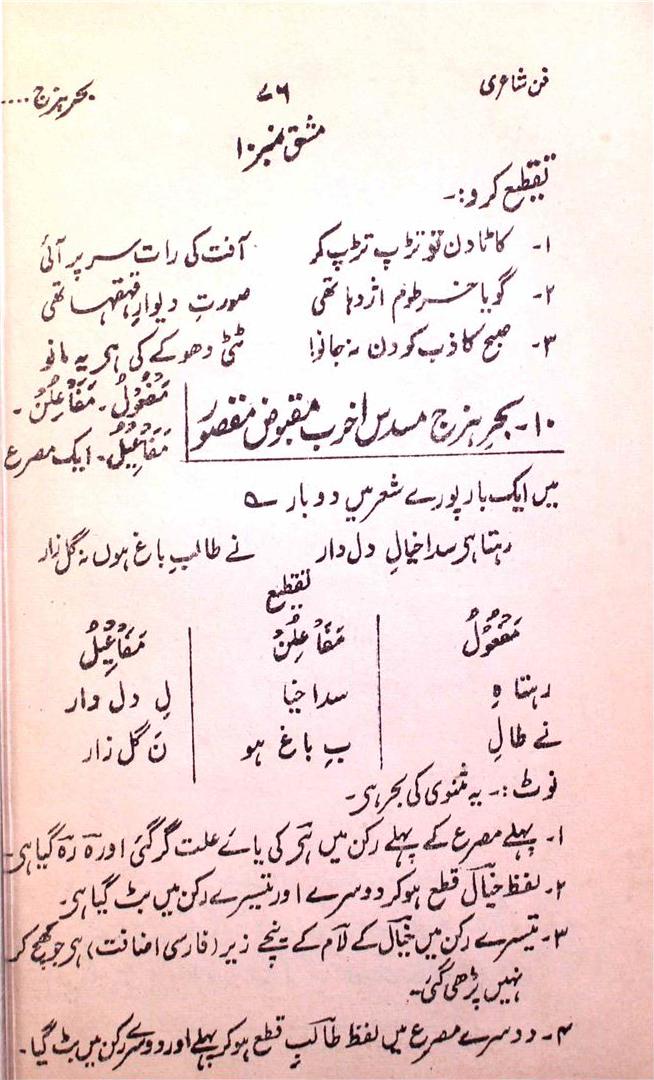 فن شاعری ۷۶ بحر ہزج ....
مشق نمبر ۱۰
تقطیع کرو :۔
۱۔ کاٹا دن تو تڑپ تڑپ کر آفت کی رات سر پر آئی
۲۔ گویا خرطوم اژدہا تھی صورتِ دیوارِ قہقہا تھی
۳۔ صبح کاذب کو دن نہ جانو! ٹٹی دھوکے کی ہی یہ مانو
۱۰۔ بحرِ ہزج مسدس اخرب مقبوض مقصور
مَفْعُوْلُ۔ مَفَاْعِلُنْ۔
مَفَاْعِیْلُ۔ ایک مصرع
میں ایک بار پورے شعر میں دو بار ؎
رہتا ہی سدا خیالِ دل دار نے طالبِ باغ ہوں نہ گل زار
تقطیع
مَفْعُوْلُ مَفَاْعِلُنْ مَفَاْعِیْلُ
رہتا ہِ سدا خیا لِ دل دار
نے طالِ بِ باغ ہو نَ گل زار
نوٹ :۔ یہ مثنوی کی بحر ہی۔
۱۔ پہلے مصرع کے پہلے رکن میں ہی کی یائے علت گر گئی اور ہ رہ گیا ہی۔
۲۔ لفظ خیال قطع ہو کر دوسرے اور تیسرے رکن میں بٹ گیا ہی۔
۳۔ تیسرے رکن میں خیال کے لام کے نیچے زیر (فارسی اضافت) ہی جو کھچ کر
نہیں پڑھی گئی۔
۴۔ دوسرے مصرع میں لفظ طالب قطع ہو کر پہلے اور دوسرے رکن میں بٹ گیا۔